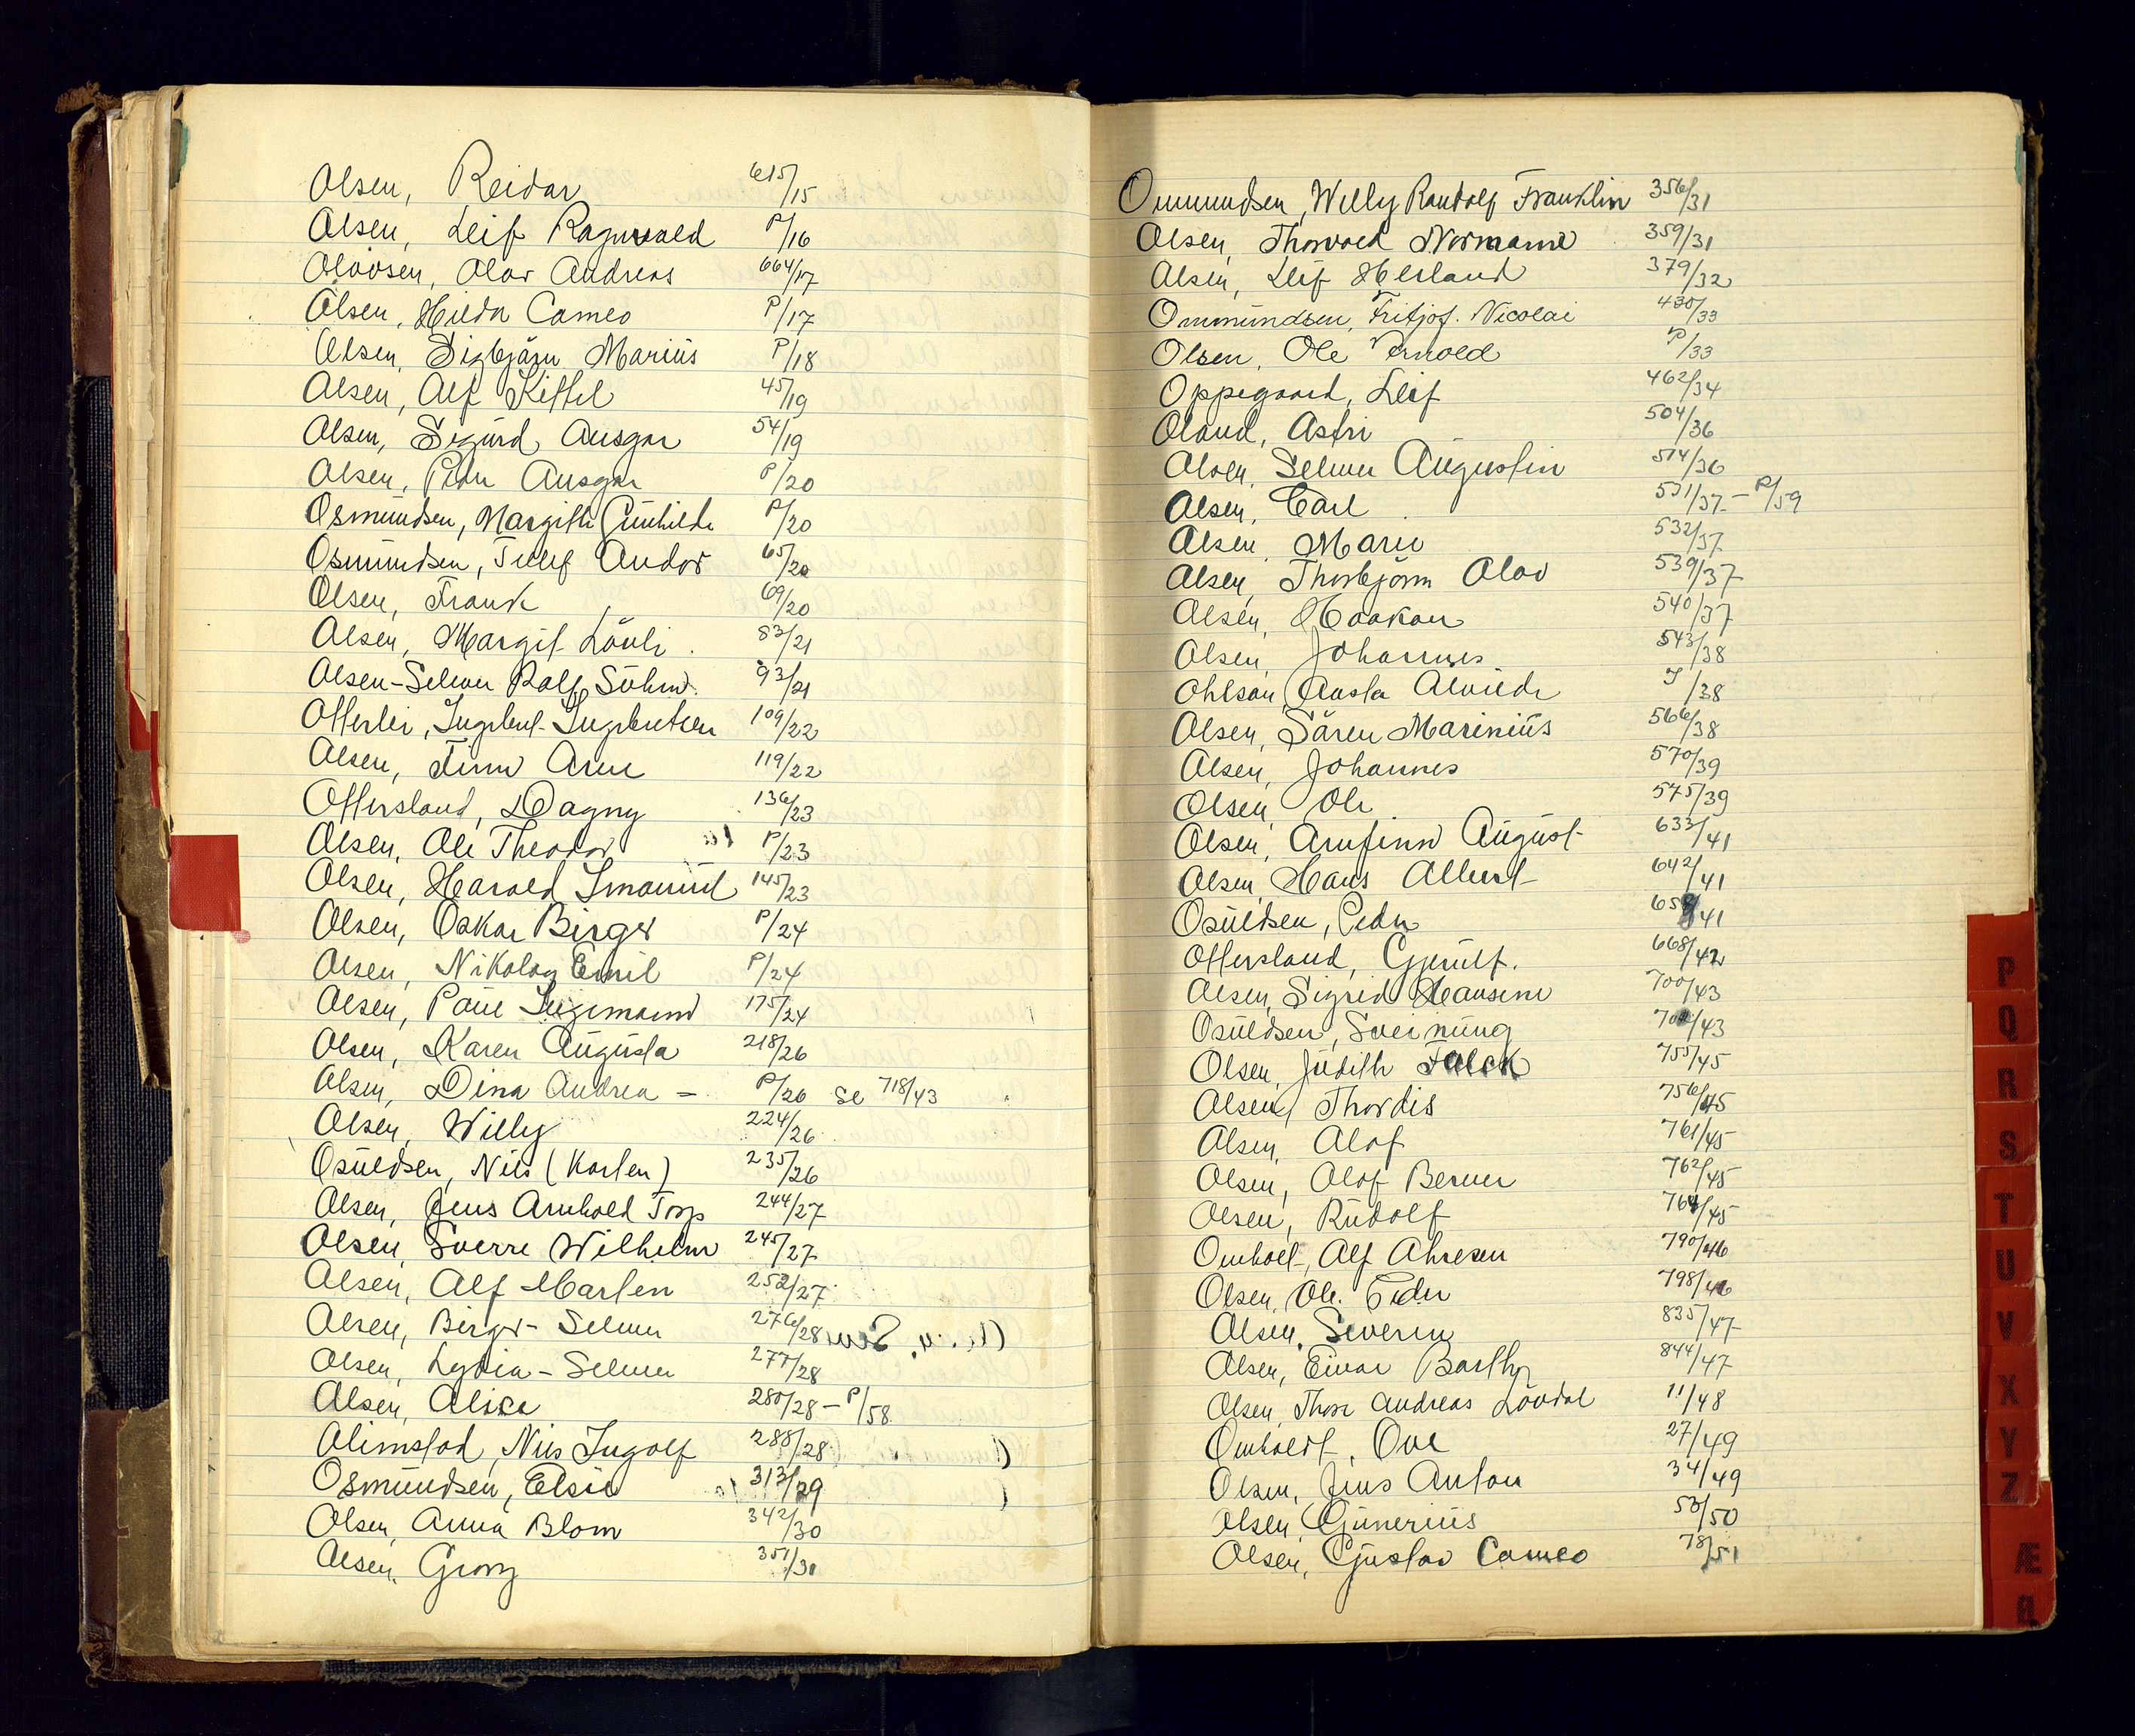 Olsen, Reidar 615/15
Olsen, Leif Ragnvald P/16
Olavsen, Olav Andreas 664/17
Olsen, Hilda Cameo P/17
Olsen, Sigbjørn Marius P/18
Olsen, Alf Kittel 45/19
Olsen, Sigurd Ansgar 54/19
Olsen, Peder Ansgar P/20
Osmundsen, Margith Gunhilde P/20
Osmundsen, Tellef Andor 65/20
Olsen, Frank 69/20
Olsen, Margit Løvli 83/21
Olsen-Selmer Ralf Söhm. 93/21
Otterlei, Ingebret Ingebretsen 109/22
Olsen, Finn Arne 119/22
Ottersland, Dagny 136/23
Olsen, Ole Theodor P/23
Olsen, Harald Imanuel 145/23
Olsen, Oskar Birger P/24
Olsen, Nikolay Emil P/24
Olsen, Paul Ingemann 175/24
Olsen, Karen Augusta 218/26
Olsen, Dina Andrea - P/26 se 718/43
Olsen, Willy 224/26
Osuldsen, Nils (Karlen) 235/26
Olsen, Jens Arnhold Torp 244/27
Olsen, Sverre Wilhelm 245/27
Olsen, Alf Marlen 252/27
Olsen, Birger-Selmer 276/28
Olsen, Lydia-Selmer 277/28
Olsen, Alice 280/28 - P/58
Olimstad, Nils Ingolf 288/28
Osmundsen, Elsie 313/29
Olsen, Anna Blom 342/30
Olsen, Georg 351/31
Ommundsen, Willy Randolf Franklin 356/31
Olsen, Thorvald Normann 359/31
Olsen, Leif Herland 379/32
Ommundsen, Fritjof. Nicolai 430/33
Olsen, Ole Arnold P/33
Oppegaard, Leif 462/34
Oland, Astri 504/36
Olsen, Selmer Augustin 514/36
Olsen, Carl 531/37 - P/59
Olsen, Marie 532/37
Olsen, Thorbjørn Olav 539/37
Olsen, Haakon 540/37
Olsen, Johannes 543/38
Ohlson, Austa Alvilde /38
Olsen, Søren Marinius 566/38
Olsen, Johannes 570/39
Olsen, Ole 575/39
Olsen, Arnfinn August 633/41
Olsen, Hans Albert 642/41
Osuldsen, Peder /41
Ottersland, Gjerulf. 668/42
Olsen, Sigrid Hansine 700/43
Osuldsen, Sveinung /43
Olsen, Judith Falck 755/45
Olsen, Thordis 756/45
Olsen, Olaf 761/45
Olsen, Olaf Berner 762/45
Olsen, Rudolf 764/45
Omholt, Alf Ahresen 790/46
Olsen, Ole Peder 798/46
Olsen, Severin 835/47
Olsen, Einar Barthy 844/47
Olsen, Thore Andreas Løvdal 11/48
Omholdt, Ove 27/49
Olsen, Jens Anton 34/49
Olsen, Gunerius 53/50
Olsen, Gustav Cameo 78/51
P
Q
R
S
T
U
V
X
Y
Z
Æ
Ø